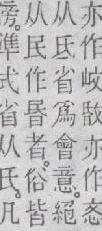 亦作亦作忞
从氏省爲會意。絕
从民作昬者。俗皆
牓準式省从氏。凡